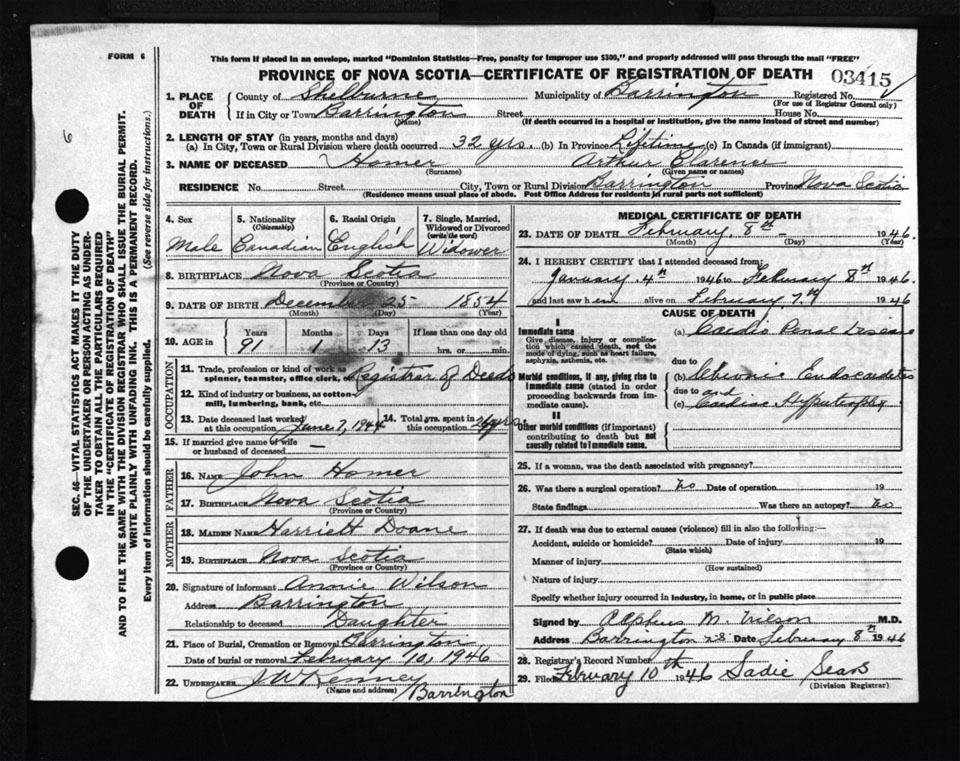 FORM 6
This form if placed in an envelope, marked "Dominion Statistics—Free, penalty for improper use $300," and properly addressed will pass through the mail "FREE"
PROVINCE OF NOVA SCOTIA—CERTIFICATE OF REGISTRATION OF DEATH 03415
1. PLACE OF DEATH County of Shelburne Municipality of Barrington Registered No.
(For use of Registrar General only)
If in City or Town Barrington Street House No.
(Name) (If death occurred in a hospital or institution, give the name instead of street and number)
2. LENGTH OF STAY (in years, months and days)
(a) In City, Town or Rural Division where death occurred 32 yrs. (b) In Province Lifetime (c) In Canada (if immigrant)
3. NAME OF DECEASED Homer Arthur Clarence
(Surname) (Given name or names)
RESIDENCE No. Street City, Town or Rural Division Barrington Province Nova Scotia
(Residence means usual place of abode. Post Office Address for residents in rural parts not sufficient)
4. Sex 5. Nationality (Citizenship) 6. Racial Origin 7. Single, Married, Widowed or Divorced (write the word)
Male Canadian English Widower
8. BIRTHPLACE Nova Scotia
(Province or Country)
9. DATE OF BIRTH December 25 1854
(Month) (Day) (Year)
10. AGE in Years Months Days If less than one day old
91 1 13 hrs. or min.
OCCUPATION
11. Trade, profession or kind of work as spinner, teamster, office clerk, etc. Registrar of Deeds
12. Kind of industry or business, as cotton-mill, lumbering, bank, etc.
13. Date deceased last worked at this occupation June 7, 1944 14. Total yrs. spent in this occupation yrs.
15. If married give name of wife or husband of deceased —
FATHER
16. NAME John Homer
17. BIRTHPLACE Nova Scotia
(Province or Country)
MOTHER
18. MAIDEN NAME Harriett Doane
19. BIRTHPLACE Nova Scotia
(Province or Country)
20. Signature of informant Annie Wilson
Address Barrington
Relationship to deceased Daughter
21. Place of Burial, Cremation or Removal Barrington
Date of burial or removal February 10, 1946
22. UNDERTAKER J W Kenney
(Name and address) Barrington
MEDICAL CERTIFICATE OF DEATH
23. DATE OF DEATH February 8th 1946.
(Month) (Day) (Year)
24. I HEREBY CERTIFY that I attended deceased from:
January 4th 1946 to February 8th 1946
and last saw him alive on February 7th 1946
CAUSE OF DEATH
I
Immediate cause (a) Cardio Renal Disease
Give disease, injury or complication which caused death, not the mode of dying, such as heart failure, asphyxia, asthenia, etc.
due to
Morbid conditions, if any, giving rise to immediate cause (stated in order proceeding backwards from immediate cause).
(b) Chronic Endocarditis
due to and
(c) Cardiac Hypertrophy
II
Other morbid conditions (if important) contributing to death but not causally related to immediate cause.
25. If a woman, was the death associated with pregnancy?
26. Was there a surgical operation? no Date of operation 19
State findings Was there an autopsy? no
27. If death was due to external causes (violence) fill in also the following:—
Accident, suicide or homicide? Date of injury 19
(State which)
Manner of injury
(How sustained)
Nature of injury
Specify whether injury occurred in industry, in home, or in public place
Signed by Alpheus M. Wilson M.D.
Address Barrington N.S. Date February 8th 1946
28. Registrar's Record Number
29. Filed February 10th 1946 Sadie Sears
(Division Registrar)
SEC. 46—VITAL STATISTICS ACT MAKES IT THE DUTY
OF THE UNDERTAKER OR PERSON ACTING AS UNDER-
TAKER TO OBTAIN ALL THE PARTICULARS REQUIRED
IN THE "CERTIFICATE OF REGISTRATION OF DEATH"
AND TO FILE THE SAME WITH THE DIVISION REGISTRAR WHO SHALL ISSUE THE BURIAL PERMIT.
WRITE PLAINLY WITH UNFADING INK. THIS IS A PERMANENT RECORD.
Every item of information should be carefully supplied. (See reverse side for instructions.)
6